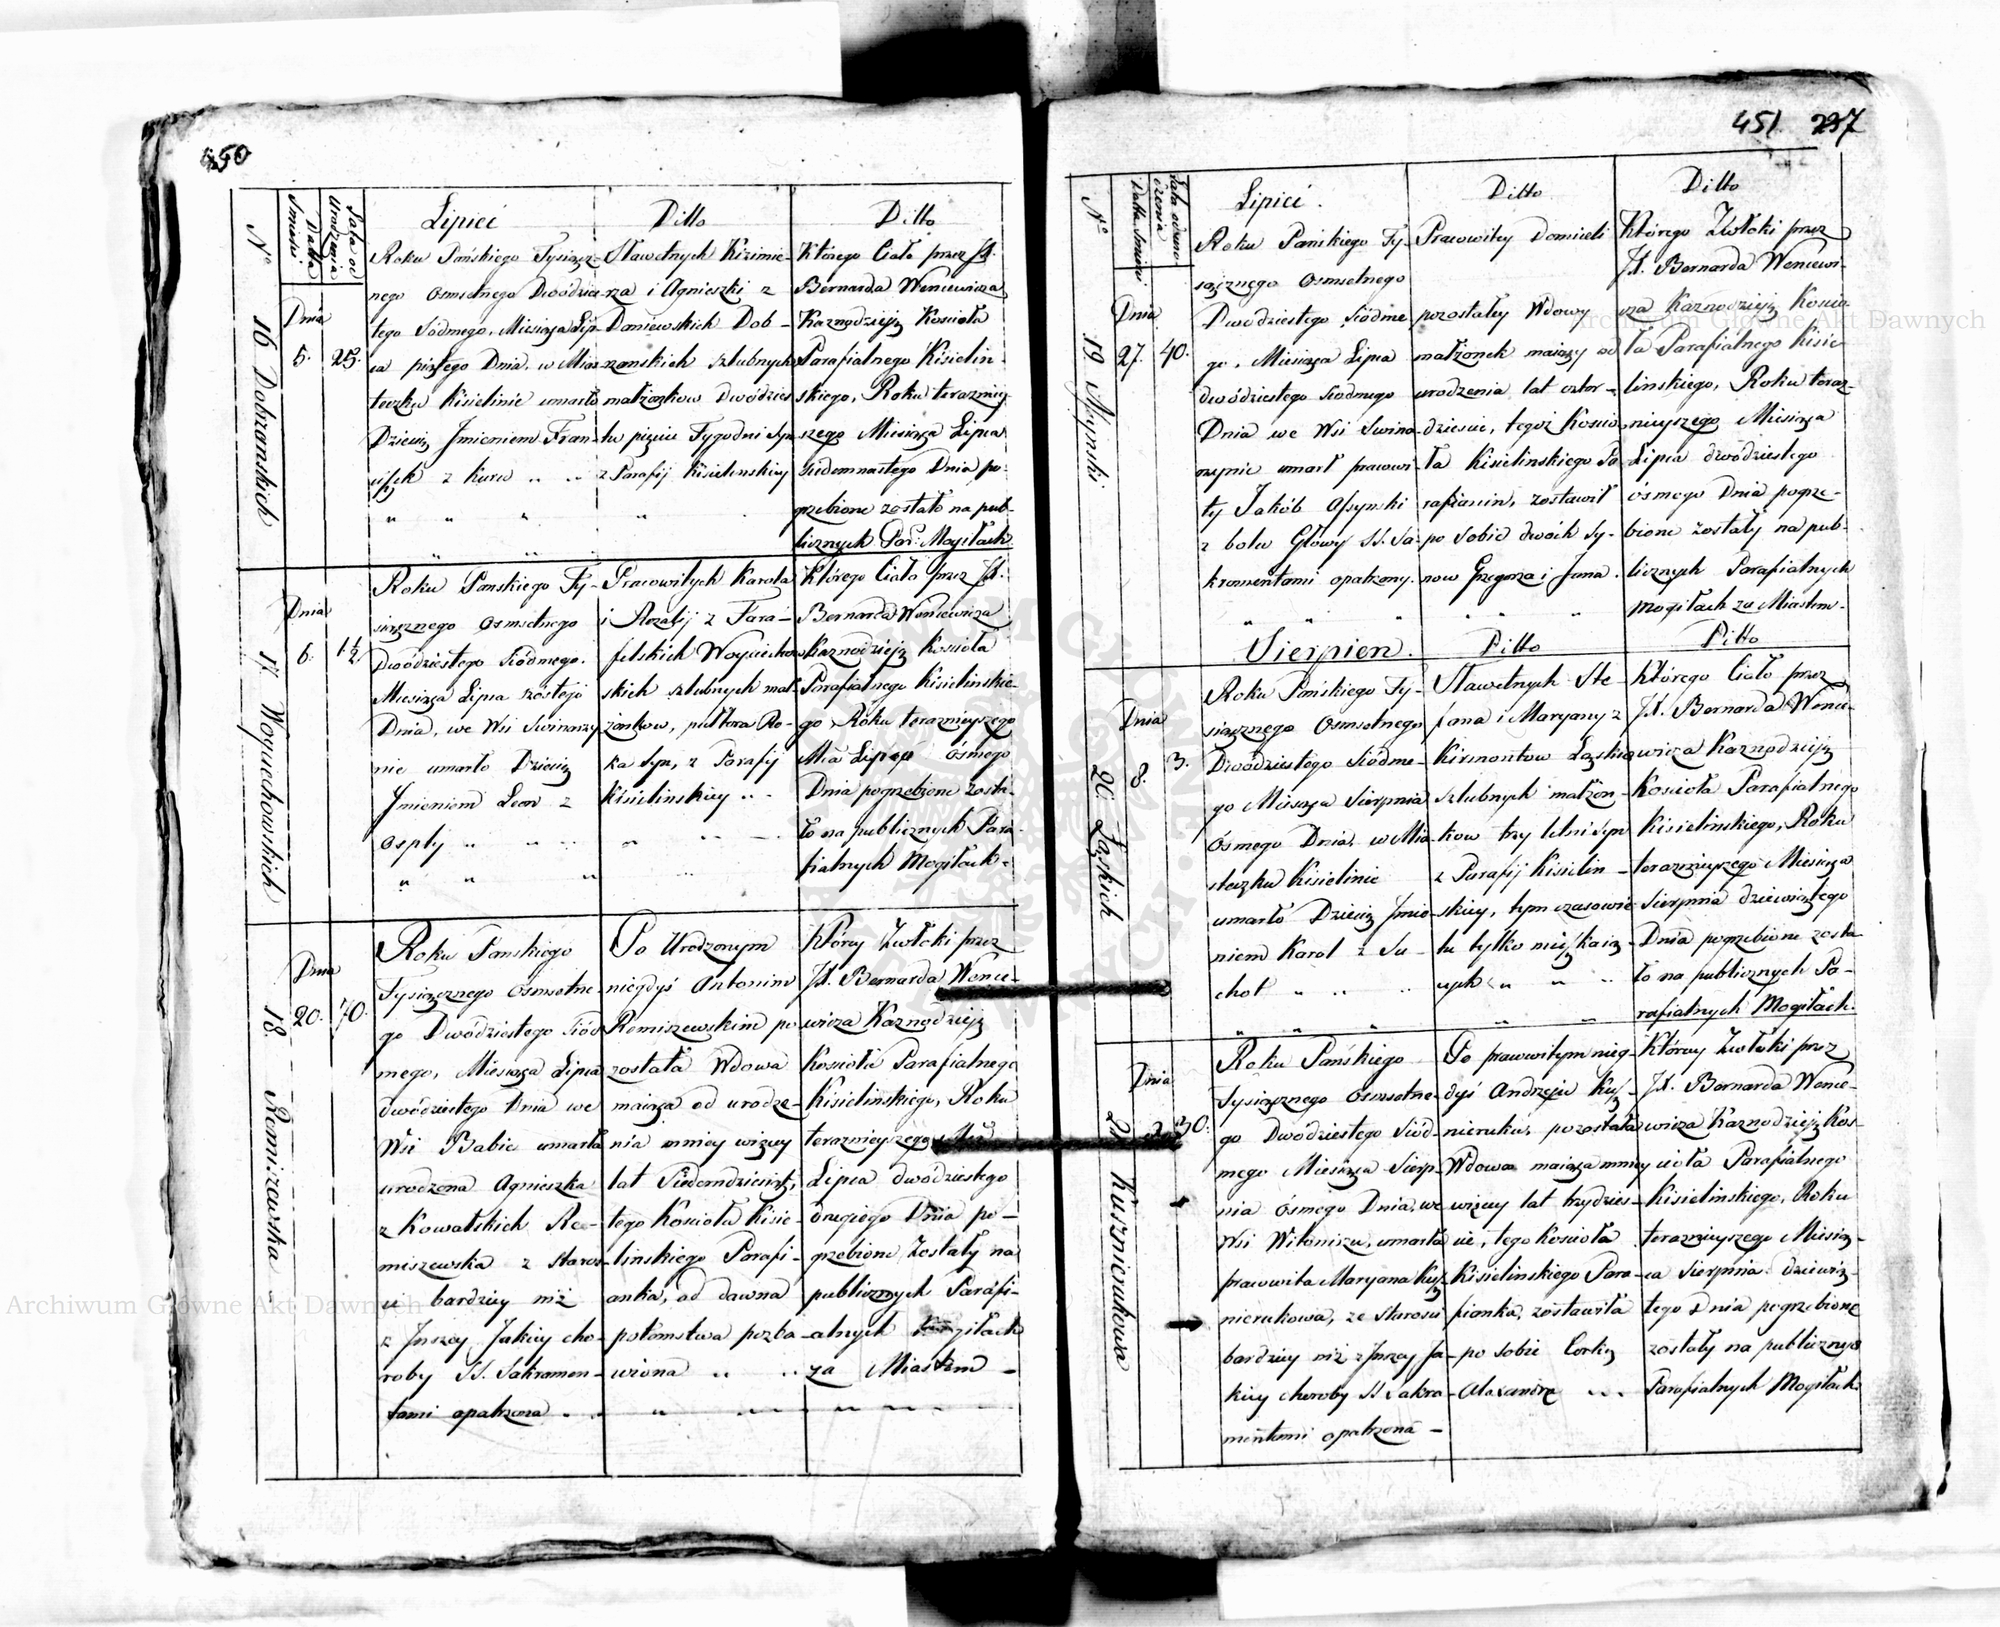 450
Nº
Datta Smierci
Lata od Urodzenia
Lipiec
Ditto
Ditto
16 Dobrzanskich
Dnia
5.
25.
Roku Pańskiego Tysiącz-
nego Osmsetnego Dwódzies-
tego Siódmego, Miesiąca Lip-
ca piątego Dnia, w Mias-
teczku Kisielinie umarło
Dziecię Jmieniem Fran-
ciszek z Kuru
Sławetnych Kizimie-
rza i Agnieszki z
Daniewskich Dob-
rzanskich szlubnych
małżonkow Dwódzies-
tu pięciu Tygodni Syn
z Parafij Kisielinskiey
Którego Ciało przez JX.
Bernarda Wencewicza
Kaznodzieję Kościoła
Parafialnego Kisielin-
skiego, Roku teraźniey-
szego Miesiąca Lipca
siedemnastego Dnia po-
grzebione zostało na pub-
licznych Par: Mogiłach
17. Woyciechowskich
Dnia
6.
1½
Roku Panskiego Ty-
siącznego Osmsetnego
Dwódziestego Siódmego.
Miesiąca Lipca szóstego
Dnia, we Wsi Swinarzy-
nie umarło Dziecię
Jmieniem Leon z
Ospy
Pracowitych Karola
i Rozalij z Tara-
felskich Woyciechow-
skich szlubnych mał-
żonkow, pułtora Ro-
ka Syn, z Parafij
Kisielinskiey
Którego Ciało przez JX.
Bernarda Wencewicza
Kaznodzieję Kościoła
Parafialnego Kisielinskie-
go Roku teraznieyszego
Mca Lipca ósmego
Dnia pogrzebione zosta-
ło na publicznych Para-
fialnych Mogiłach.
18. Remiszewska
Dnia
20.
70.
Roku Panskiego
Tysiącznego Osmsetne-
go Dwódziestego Siód-
mego, Miesiąca Lipca
dwódziestego Dnia we
Wsi Babie umarła
urodzona Agnieszka
z Kowalskich Re-
miszewska z staroś-
ci bardziey niż
z Jnszey Jakiey cho-
roby SS. Sakramen-
tami opatrzona
Po Urodzonym
niegdyś Antonim
Remiszewskim po
została Wdowa
maiąca od urodze-
nia mniey więcey
lat Siedemdziesiąt,
tego Kościoła Kisie-
linskiego Parafi-
anka, od dawna
potomstwa pozba-
wiona
Którey Zwłoki przez
JX. Bernarda Wence-
wicza Kaznodzieję
Kościoła Parafialnego
Kisielinskiego, Roku
teraznieyszego Mca
Lipca dwódziestego
drugiego Dnia po-
grzebione Zostały na
publicznych Parafi-
alnych Mogiłach
za Miastem
451 237
Nº
Datta Smierci
Lata od uro-
dzenia
Lipiec.
Ditto
Ditto
19
Dnia
27.
40.
Roku Pańskiego Ty-
siącznego Osmsetnego
Dwódziestego Siódme
go, Miesiąca Lipca
dwódziestego Siódmego
Dnia we Wsi Swina-
rzynie umarł pracowi-
ty Jakób
z bolu Głowy SS. Sa-
kramentami opatrzony.
Pracowitey Domiceli
pozostałey Wdowy
małżonek maiący od
urodzenia lat czter-
dzieście, tegoż Kościo-
ła Kisielinskiego Pa-
rafianin, zostawił
po sobie dwóch Sy-
now Grzegorza i Jana.
Którego Zwłoki przez
JX. Bernarda Wencewi-
cza Kaznodzieję Kościo-
ła Parafialnego Kisie
linskiego, Roku teraz-
nieyszego Miesiąca
Lipca dwódziestego
ósmego Dnia pogrze-
bione zostały na pub-
licznych Parafialnych
mogiłach za Miastem.
Sierpien.
Ditto
Ditto
20. Ląskich
Dnia
8.
3.
Roku Pańskiego Ty-
siącznego Osmsetnego
Dwódziestego Siódme-
go Miesiąca Sierpnia
Ósmego Dnia, w Mia-
steczku Kisielinie
umarło Dziecię Jmie-
niem Karol z Su-
chot
Sławetnych Ste-
fana i Maryany z
Kirmontow Ląskich
szlubnych małżon-
kow trzy letni Syn
z Parafij Kisielin-
skiey, tym czasowie
tu tylko mieszkaią-
cych
Którego Ciało przez
JX. Bernarda Wence-
wicza Kaznodzieję
Kościoła Parafialnego
Kisielinskiego, Roku
teraznieyszego Miesiąca
Sierpnia dziewiątego
Dnia pogrzebione zosta
ło na publicznych Pa-
rafialnych Mogiłach.
21 Kuznierukowa
Dnia
30.
Roku Pańskiego
Tysiącznego Osmsetne-
go Dwódziestego Siód-
mego Miesiąca Sierp-
nia ósmego Dnia, we
Wsi Witoniżu, umarła
pracowita Maryana Kuź-
nierukowa, ze starości
bardziey niż z Jnszey Ja-
kiey choroby SS Sakra-
mentami opatrzona
Po pracowitym nieg-
dyś Andrzeju Kuź-
nieruku, pozostała
Wdowa maiąca mniey
więcey lat trzydzieś-
cie, tego Kościoła
Kisielinskiego Para-
fianka, zostawiła
po sobie Corkę
Alexandrę
Którey Zwłoki przez
JX. Bernarda Wence-
wicza Kaznodzieję Koś-
cioła Parafialnego
Kisielinskiego, Roku
teraznieyszego Miesią-
ca Sierpnia dziewią-
tego Dnia pogrzebione
zostały na publicznych
Parafialnych Mogiłach
Archiwum Główne Akt Dawnych
Archiwum Główne Akt Dawnych